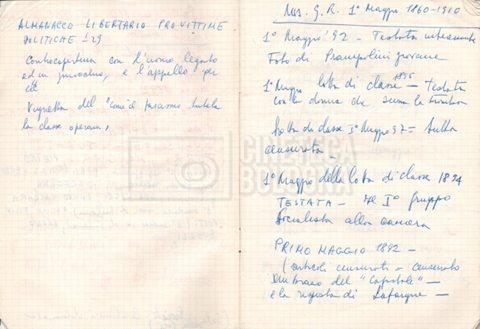 ALMANACCO LIBERTARIO PRO VITTIME
POLITICHE 1929
Controcopertina con l'uomo legato
ed un e l'appello per
Vignetta del "com'è tutela
la classe operaia,
Mos. G. R. 1° Maggio 1860-1910
1° Maggio '92 - Testata
Foto di Prampolini giovane
1° Maggio lotta di classe 1896 - Testata
con la donna che suona la tromba
Lotta di classe 1° Maggio 97 - Sulla
censurata -
1° Maggio della lotta di classe 1894
TESTATA - Il I° gruppo
socialista alla camera
PRIMO MAGGIO 1892 -
(articoli censurati - censurato
del "Capitale" -
e la risposta di Lafargue -
CINETECA
BOLOGNA